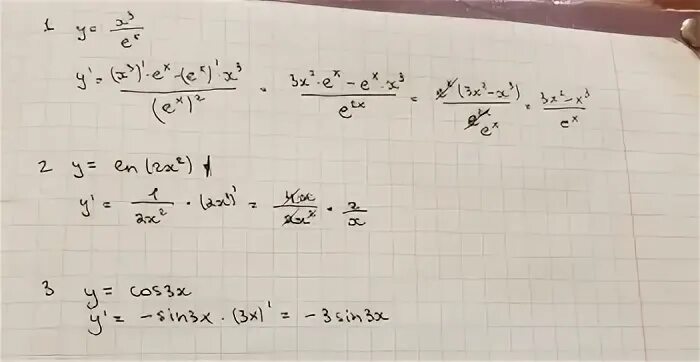 1 y = x³/eˣ
y' = ((x³)'·eˣ-(eˣ)'·x³)/(eˣ)² = (3x²·eˣ - eˣ·x³)/e²ˣ = (eˣ(3x²-x³))/(eˣ eˣ) = (3x²-x³)/eˣ
2 y = ln(2x²)
y' = 1/(2x²) · (2x²)' = 4x/(2x²) = 2/x
3 y = cos3x
y' = -sin3x · (3x)' = -3sin3x